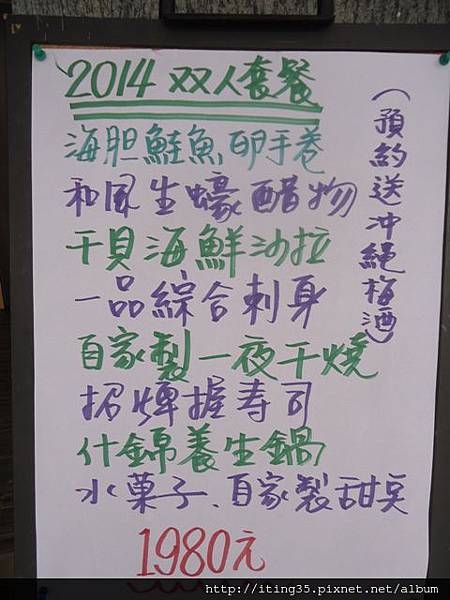 2014 双人套餐
海胆鮭魚卵手卷
和風生蠔醋物
干貝海鮮沙拉
一品綜合刺身
自家製一夜干燒
招牌握寿司
什錦養生鍋
水菓子、自家製甜点
1980元
(預約送沖繩梅酒)
http://iting35.pixnet.net/album